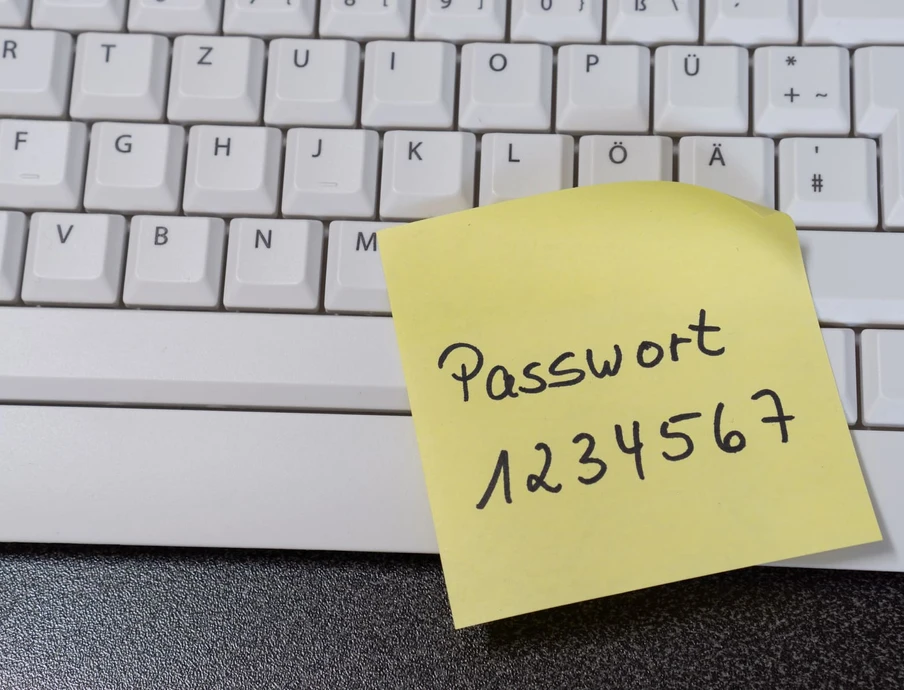 7 { [ 8 [ 9 ] 0 } ß \ ´
R T Z U I O P Ü * + ~
F G H J K L Ö Ä ' #
V B N M
Passwort
1234567